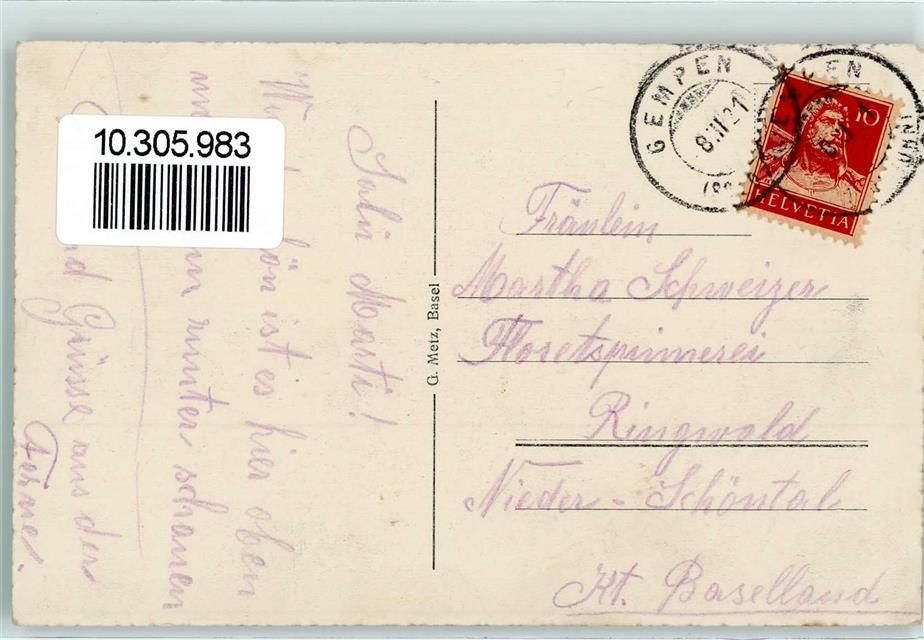 10.305.983
Salü Marti!
ist es hier oben
runter schauen
Grüsse aus der
Ferne.
G. Metz, Basel
GEMPEN
8.II.21
10
HELVETIA
Fräulein
Martha Schweizer
Floretspinnerei
Ringwald
Nieder-Schöntal
Kt. Baselland